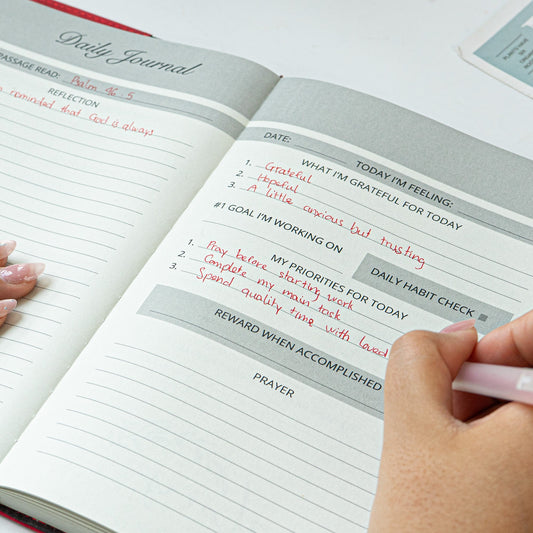 Daily Journal
PASSAGE READ: Psalm 46:5
REFLECTION
reminded that God is always
DATE:
TODAY I'M FEELING:
WHAT I'M GRATEFUL FOR TODAY
1. Grateful
2. Hopeful
3. A little anxious but trusting
#1 GOAL I'M WORKING ON
DAILY HABIT CHECK
MY PRIORITIES FOR TODAY
1. Pray before starting work
2. Complete my main task
3. Spend quality time with loved
REWARD WHEN ACCOMPLISHED
PRAYER
PLANTS HAVE